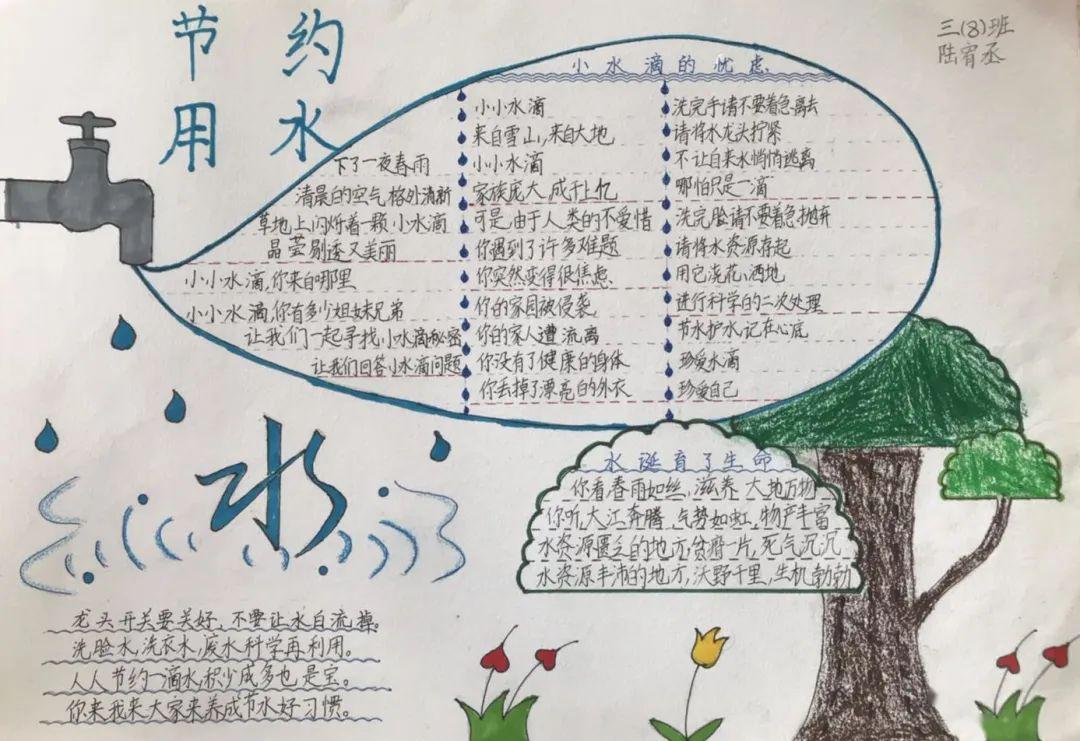 节约
用水
三(8)班
陆宥丞
小水滴的忧虑
下了一夜春雨
清晨的空气格外清新
草地上闪烁着一颗小水滴
晶莹剔透又美丽
小小水滴,你来自哪里
小小水滴,你有多少姐妹兄弟
让我们一起寻找小水滴秘密
让我们回答小水滴问题
小小水滴
来自雪山,来自大地
小小水滴
家族庞大,成千上亿
可是,由于人类的不爱惜
你遇到了许多难题
你突然变得很焦虑
你的家园被侵袭
你的家人遭流离
你没有了健康的身体
你丢掉了漂亮的外衣
洗完手请不要着急离去
请将水龙头拧紧
不让自来水悄悄逃离
哪怕只是一滴
洗完脸请不要着急抛弃
请将水资源存起
用它浇花、洒地
进行科学的二次处理
节水护水,记在心底
珍爱水滴
珍爱自己
水
水诞育了生命
你看春雨如丝,滋养大地万物
你听,大江奔腾,气势如虹,物产丰富
水资源匮乏的地方,贫瘠一片,死气沉沉
水资源丰沛的地方,沃野千里,生机勃勃
龙头开关要关好,不要让水白流掉。
洗脸水,洗衣水,废水科学再利用。
人人节约一滴水,积少成多也是宝。
你来我来大家来养成节水好习惯。